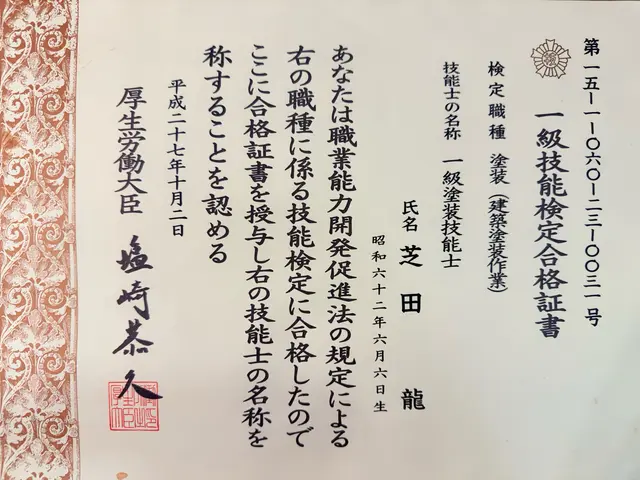 第一五-一-〇六〇-二三-〇〇三一号
一級技能検定合格証書
検定職種 塗装(建築塗装作業)
技能士の名称 一級塗装技能士
氏名 芝田 龍
昭和六十二年六月六日生
あなたは職業能力開発促進法の規定による
右の職種に係る技能検定に合格したので
ここに合格証書を授与し右の技能士の名称を
称することを認める
平成二十七年十月二日
厚生労働大臣 塩崎恭久